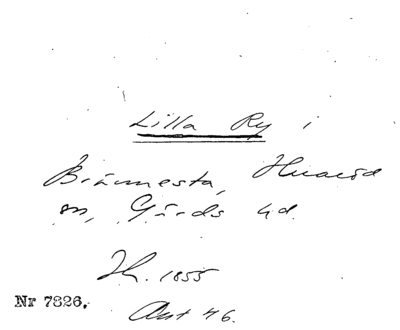 Lilla Ry i
Brännesta, Huaröd
sn, Gärds hd.
Jh. 1855
Nr 7826.
Ant 46.